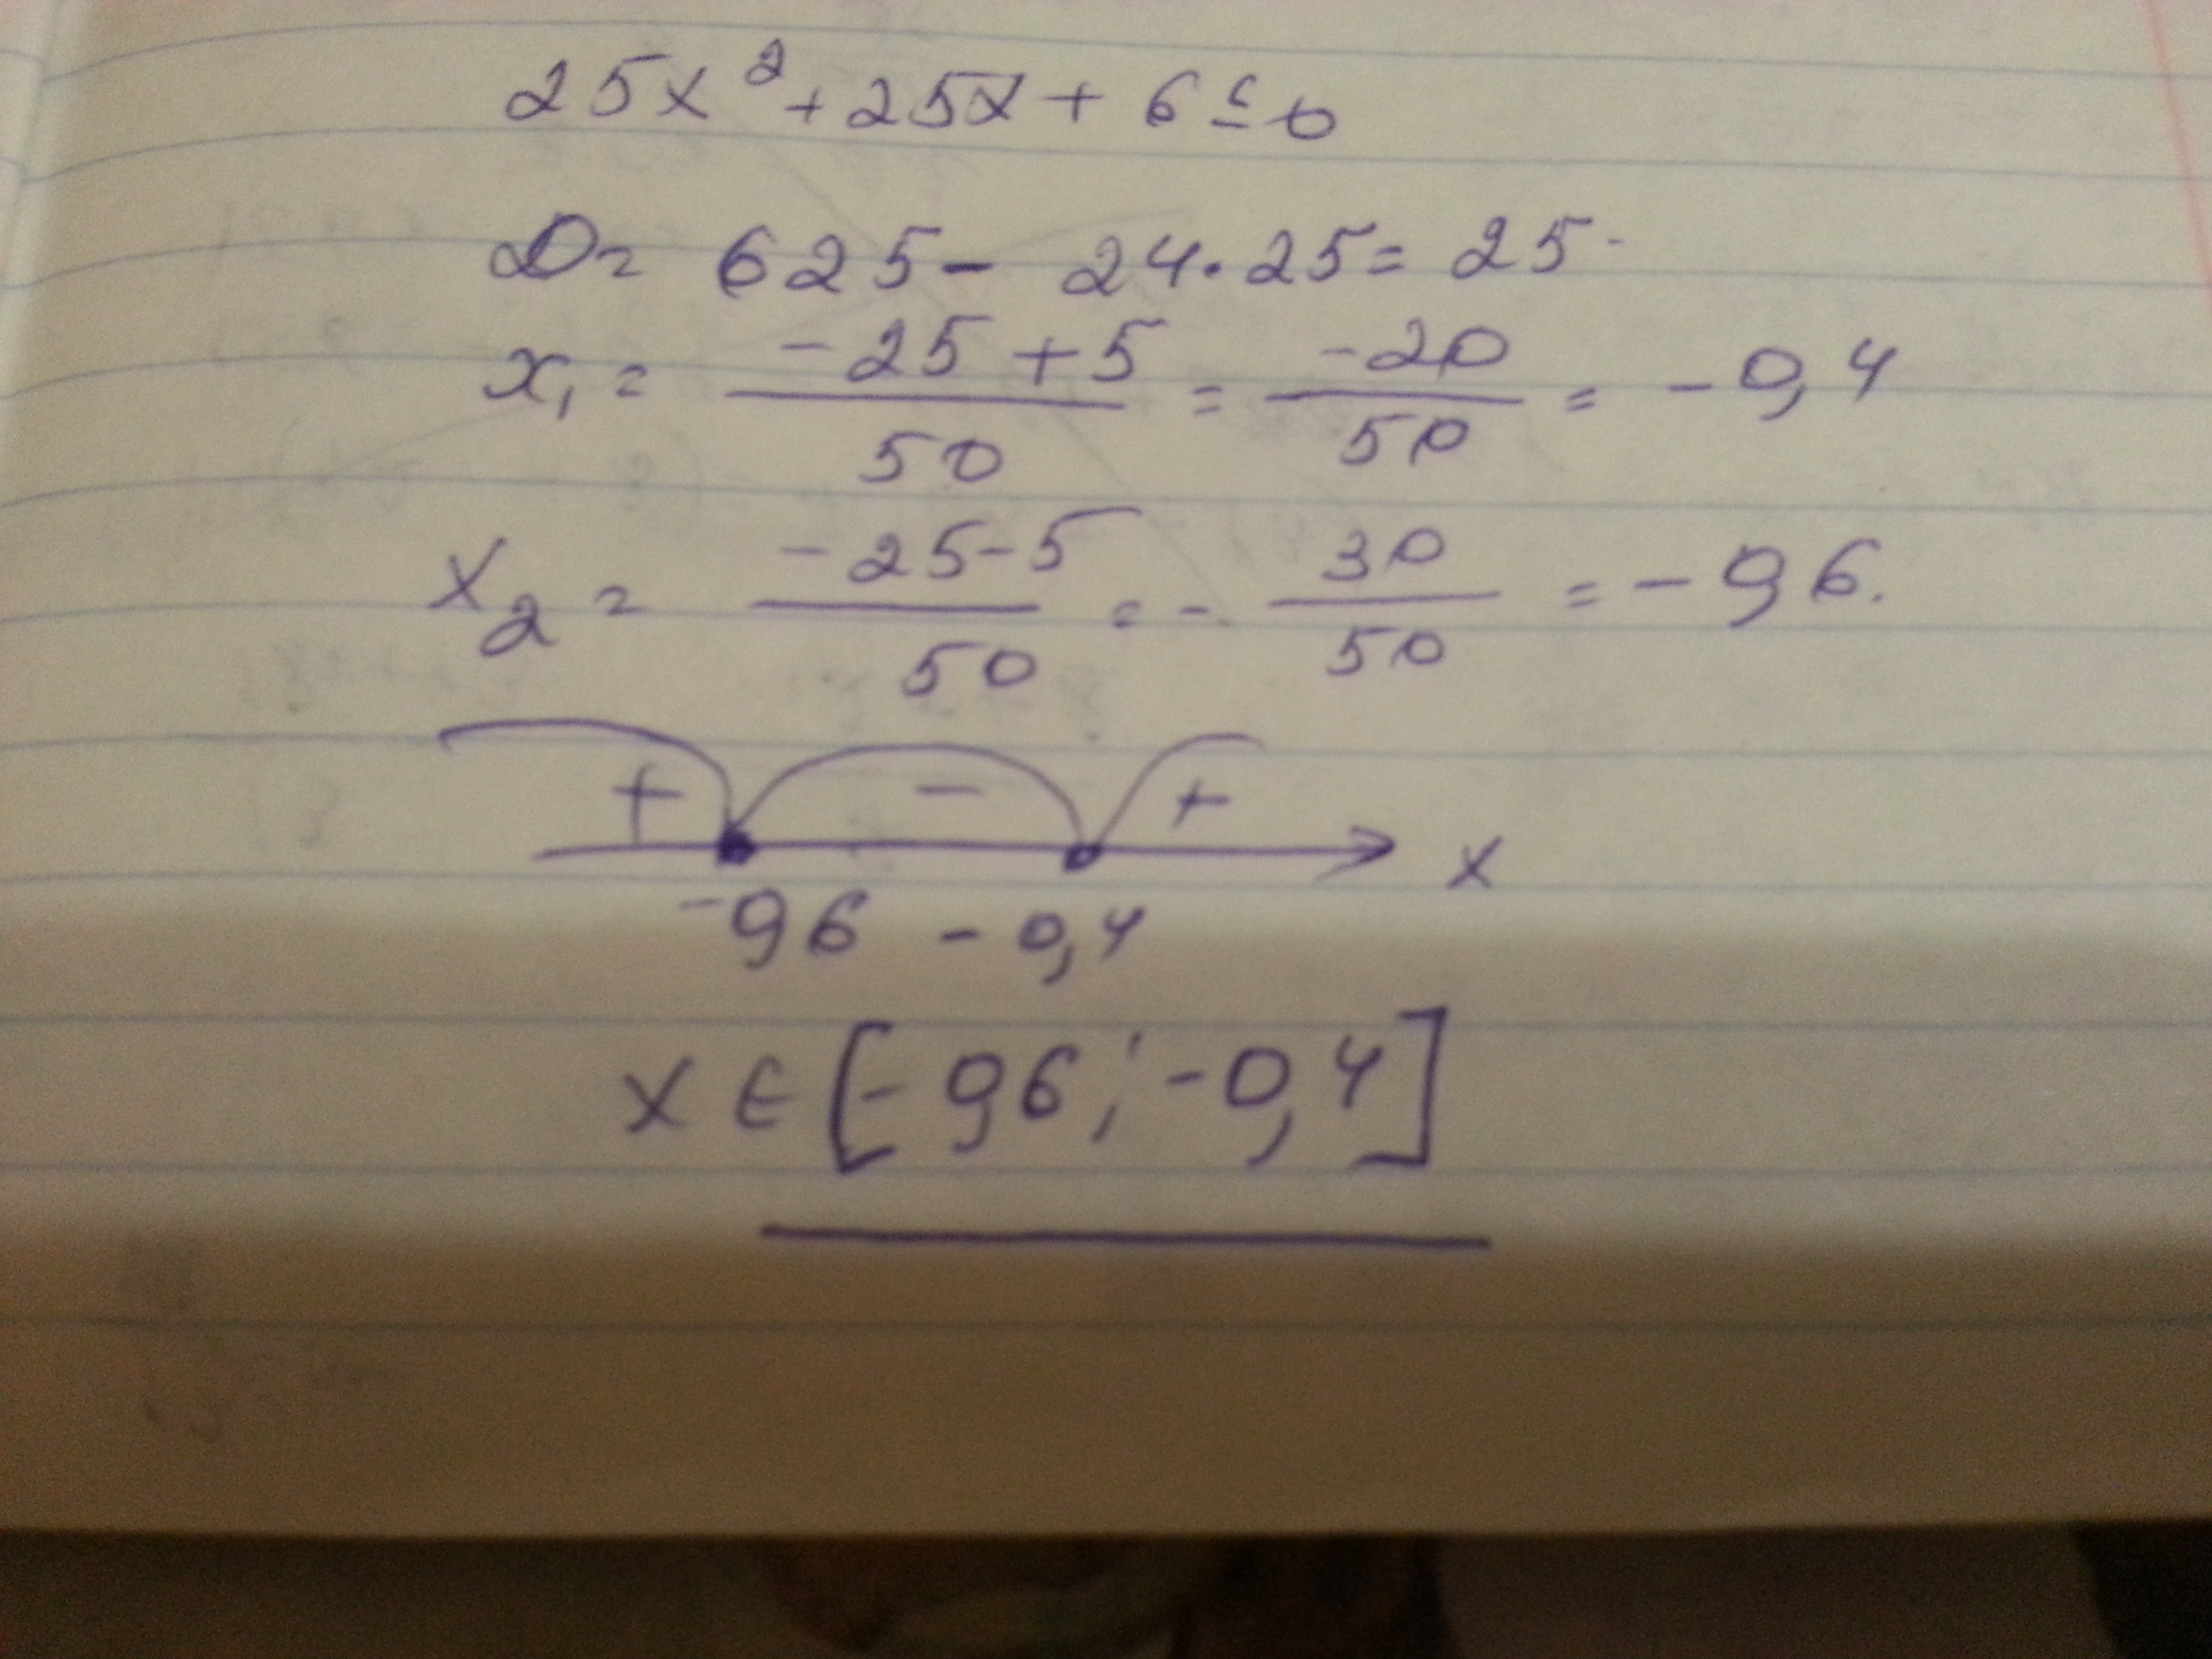 25x² + 25x + 6 ≤ 0
D = 625 - 24·25 = 25
x₁ = (-25 + 5)/50 = -20/50 = -0,4
x₂ = (-25-5)/50 = - 30/50 = -0,6.
+ - +
-0,6 -0,4 x
x ∈ [-0,6; -0,4]